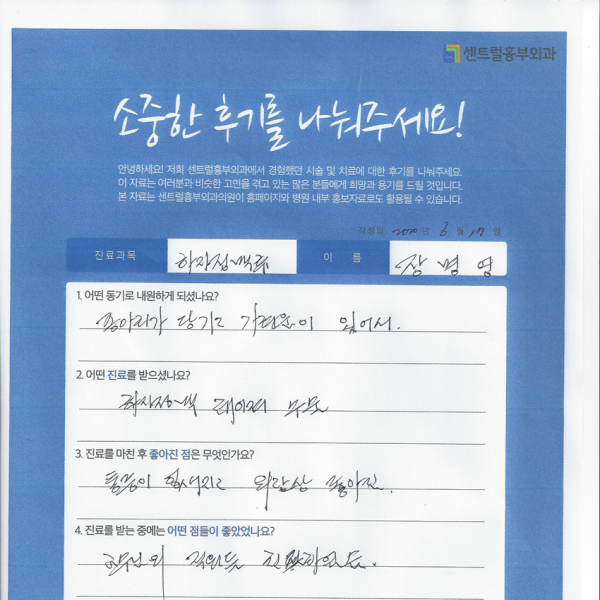 센트럴흉부외과
소중한 후기를 나눠주세요!
안녕하세요! 저희 센트럴흉부외과에서 경험했던 시술 및 치료에 대한 후기를 나눠주세요.
이 자료는 여러분과 비슷한 고민을 겪고 있는 많은 분들에게 희망과 용기를 드릴 것입니다.
본 자료는 센트럴흉부외과의원이 홈페이지와 병원 내부 홍보자료로도 활용될 수 있습니다.
작성일 2020 년 월 17 일
진료과목 하지정맥류 이 름 장 명 영
1. 어떤 동기로 내원하게 되셨나요?
종아리가 당기고 가려움이 있어서.
2. 어떤 진료를 받으셨나요?
하지정맥 레이저
3. 진료를 마친 후 좋아진 점은 무엇인가요?
통증이 외관상 좋아진.
4. 진료를 받는 중에는 어떤 점들이 좋았었나요?
직원들